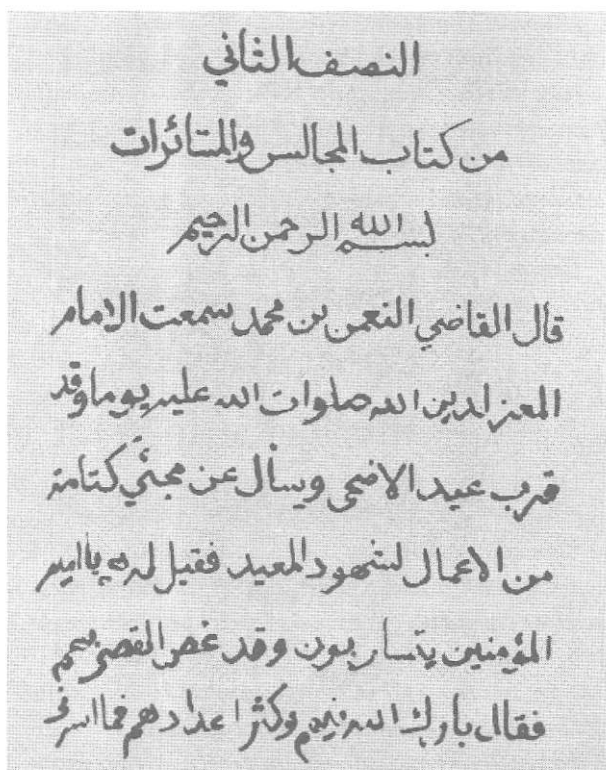 النصف الثاني
من كتاب المجالس والمسائرات
بسم الله الرحمن الرحيم
قال القاضي النعمن بن محمد سمعت الامام
المعز لدين الله صلوات الله عليه يوما وقد
قرب عيد الاضحى ويسأل عن مجئي كتامة
من الاعمال لشهود العيد فقيل له يا امير
المؤمنين يتساربون وقد غص القصر بهم
فقال بارك الله فيهم وكثر اعدادهم فما اسر